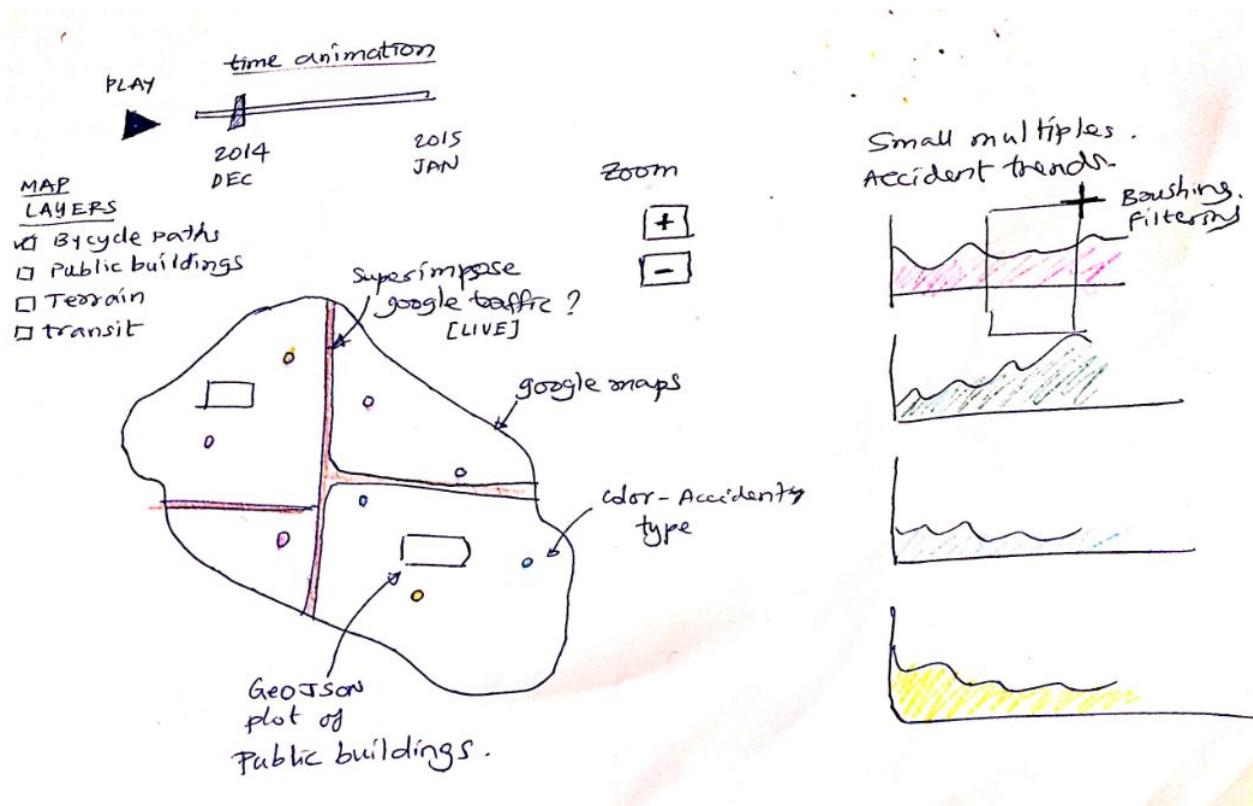 time animation
PLAY
2014
DEC
2015
JAN
MAP
LAYERS
Bycycle paths
Public buildings
Terrain
transit
Zoom
+
-
Superimpose
google traffic ?
[LIVE]
google maps
Color - Accident
type
GeoJSON
plot of
Public buildings.
Small multiples.
Accident trends.
Brushing.
Filtering